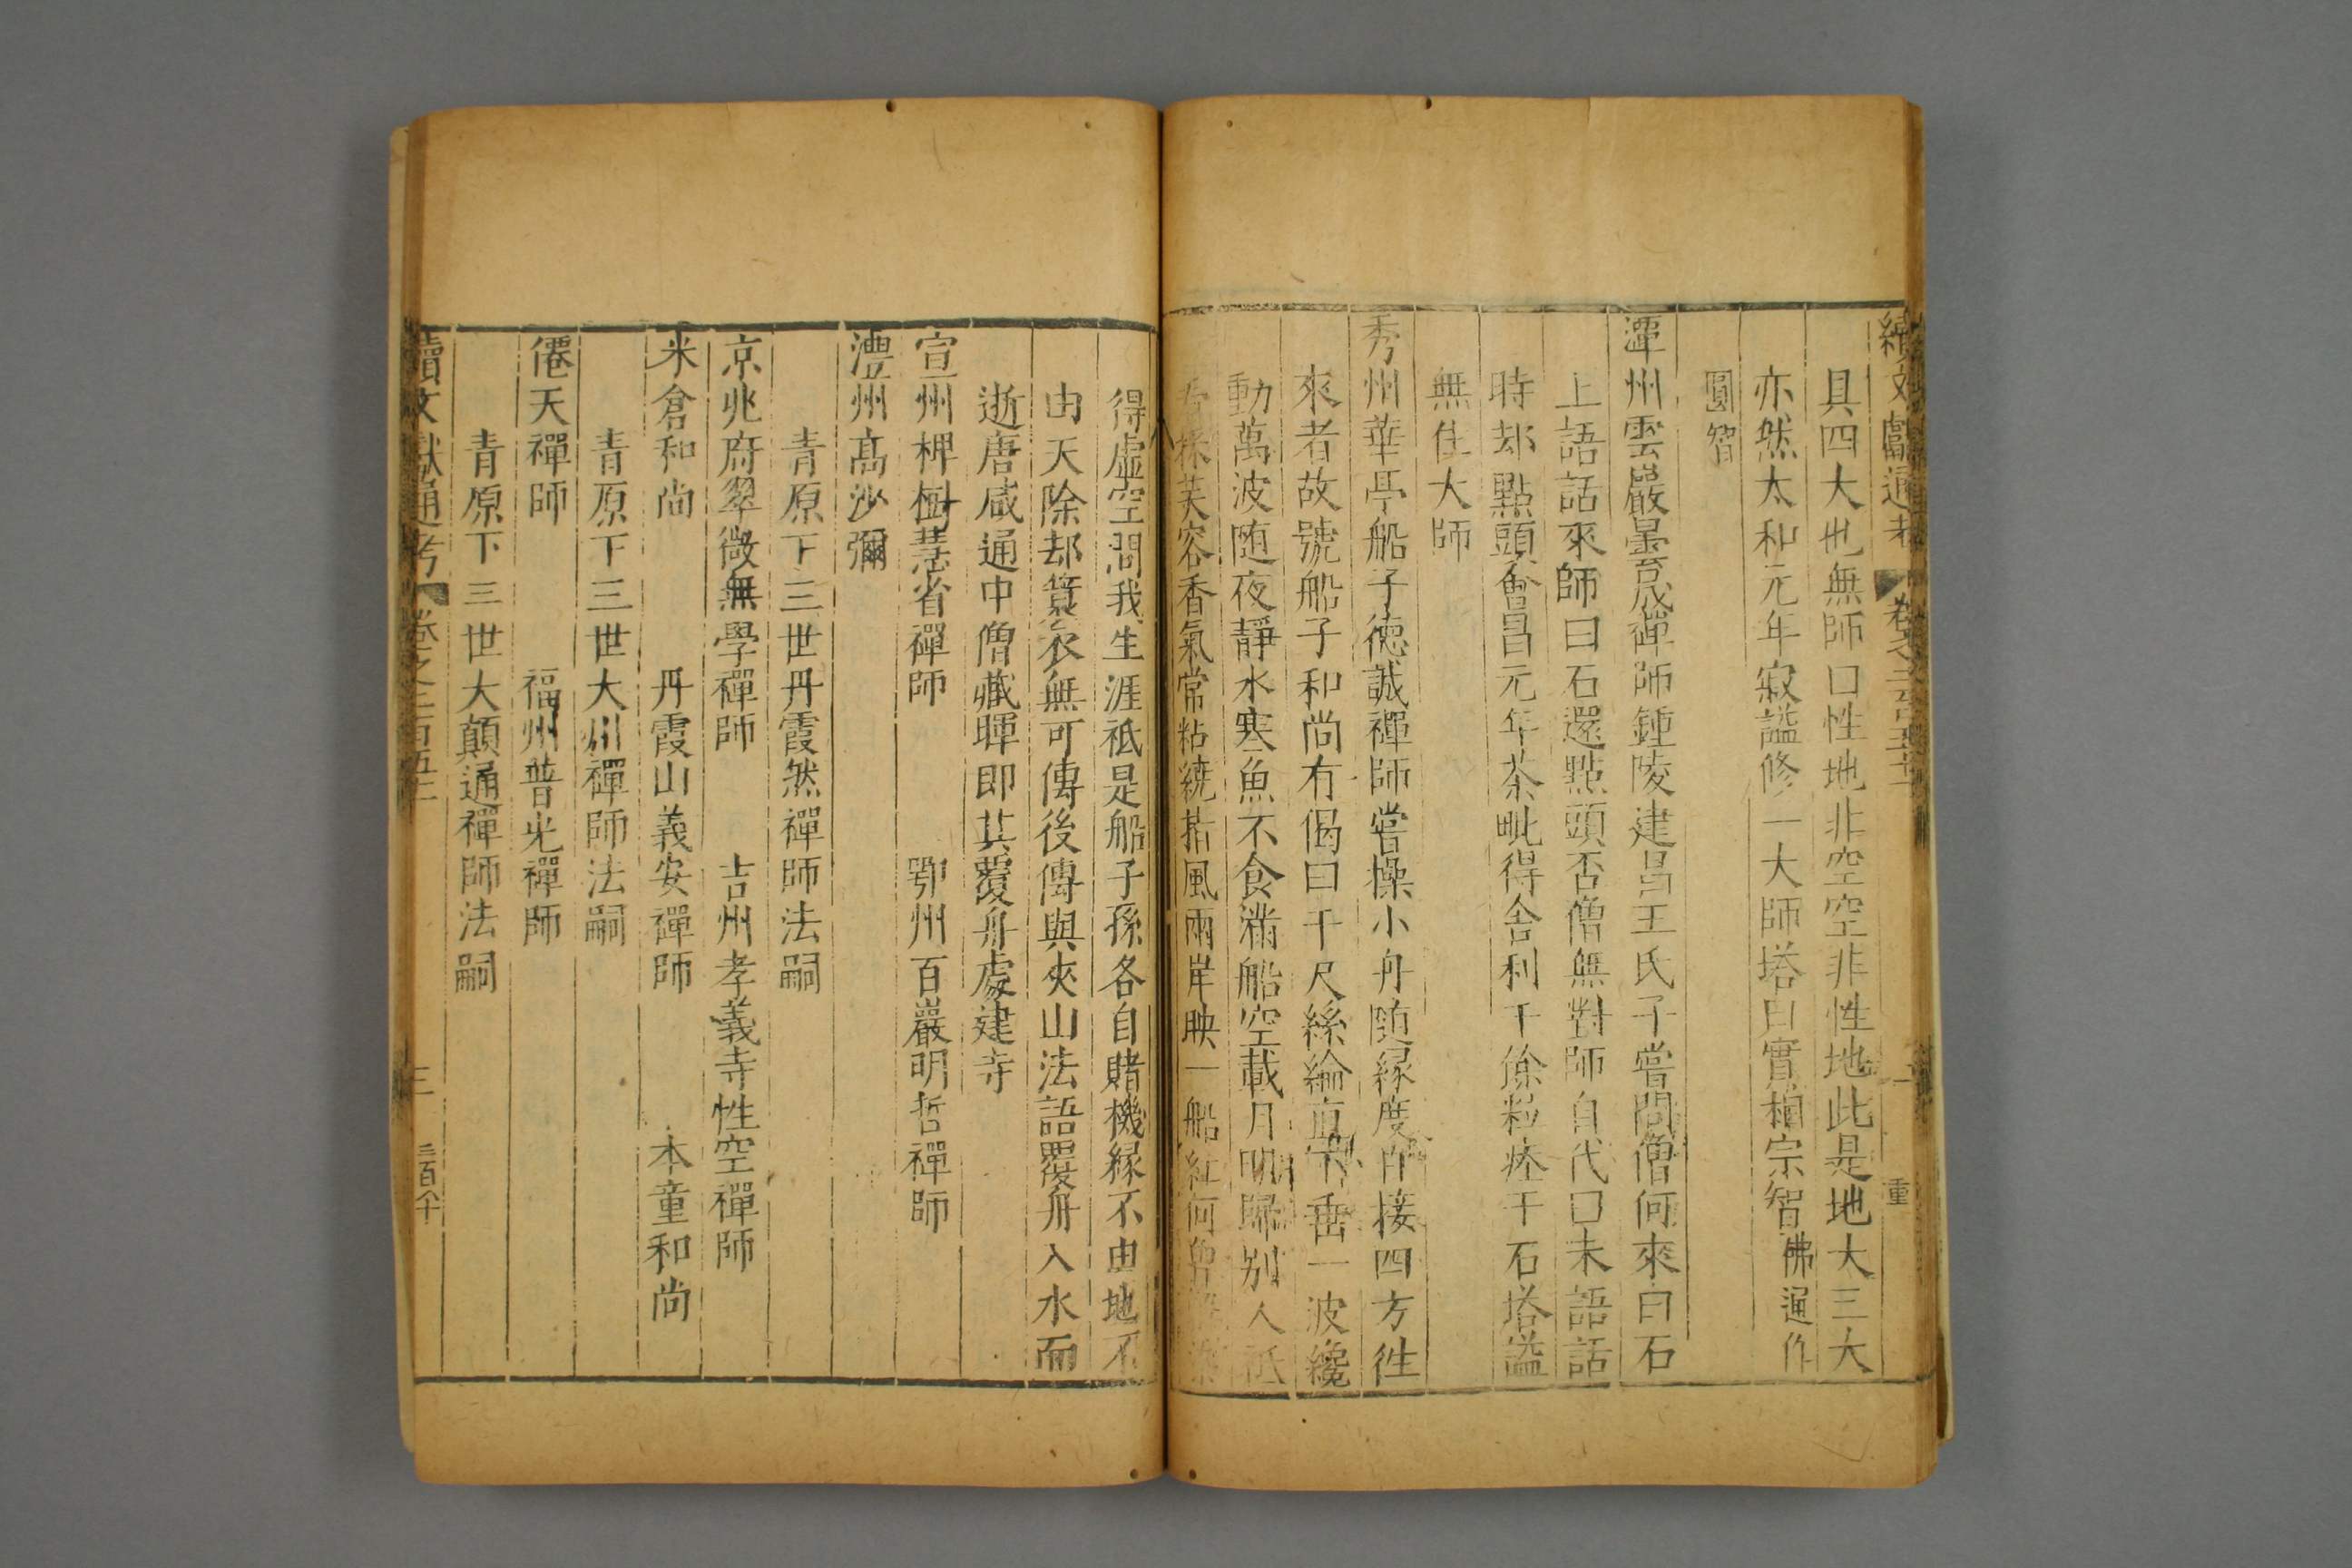 續文獻通考 卷之二百五十 一 重
具四大也無師曰性地非空空非性地此是地大三大
亦然太和元年寂謚修一大師塔曰實相宗智佛通作
圓智
潭州雲巖曇晟禪師鍾陵建昌王氏子嘗問僧何來曰石
上語話來師曰石還點頭否僧無對師自代曰未語話
時却點頭會昌元年茶毗得舍利千餘粒塟于石塔謚
無住大師
秀州華亭船子德誠禪師嘗操小舟隨緣度日接四方徃
來者故號船子和尚有偈曰千尺絲綸直下垂一波纔
動萬波隨夜靜水寒魚不食滿船空載月明歸別人祇
採芙容香氣常粘繞指風兩岸映一船紅何
得虛空問我生涯祇是船子孫各自賭機緣不由地不
由天除却簑衣無可傳後傳與夾山法語覆舟入水而
逝唐咸通中僧藏暉即其覆舟處建寺
宣州椑樹慧省禪師 鄂州百巖明哲禪師
澧州高沙彌
青原下三世丹霞然禪師法嗣
京兆府翠微無學禪師 吉州孝義寺性空禪師
米倉和尚 丹霞山義安禪師 本童和尚
青原下三世大川禪師法嗣
僊天禪師 福州普光禪師
青原下三世大顛通禪師法嗣
續文獻通考 卷之二百五十 三 三百八十